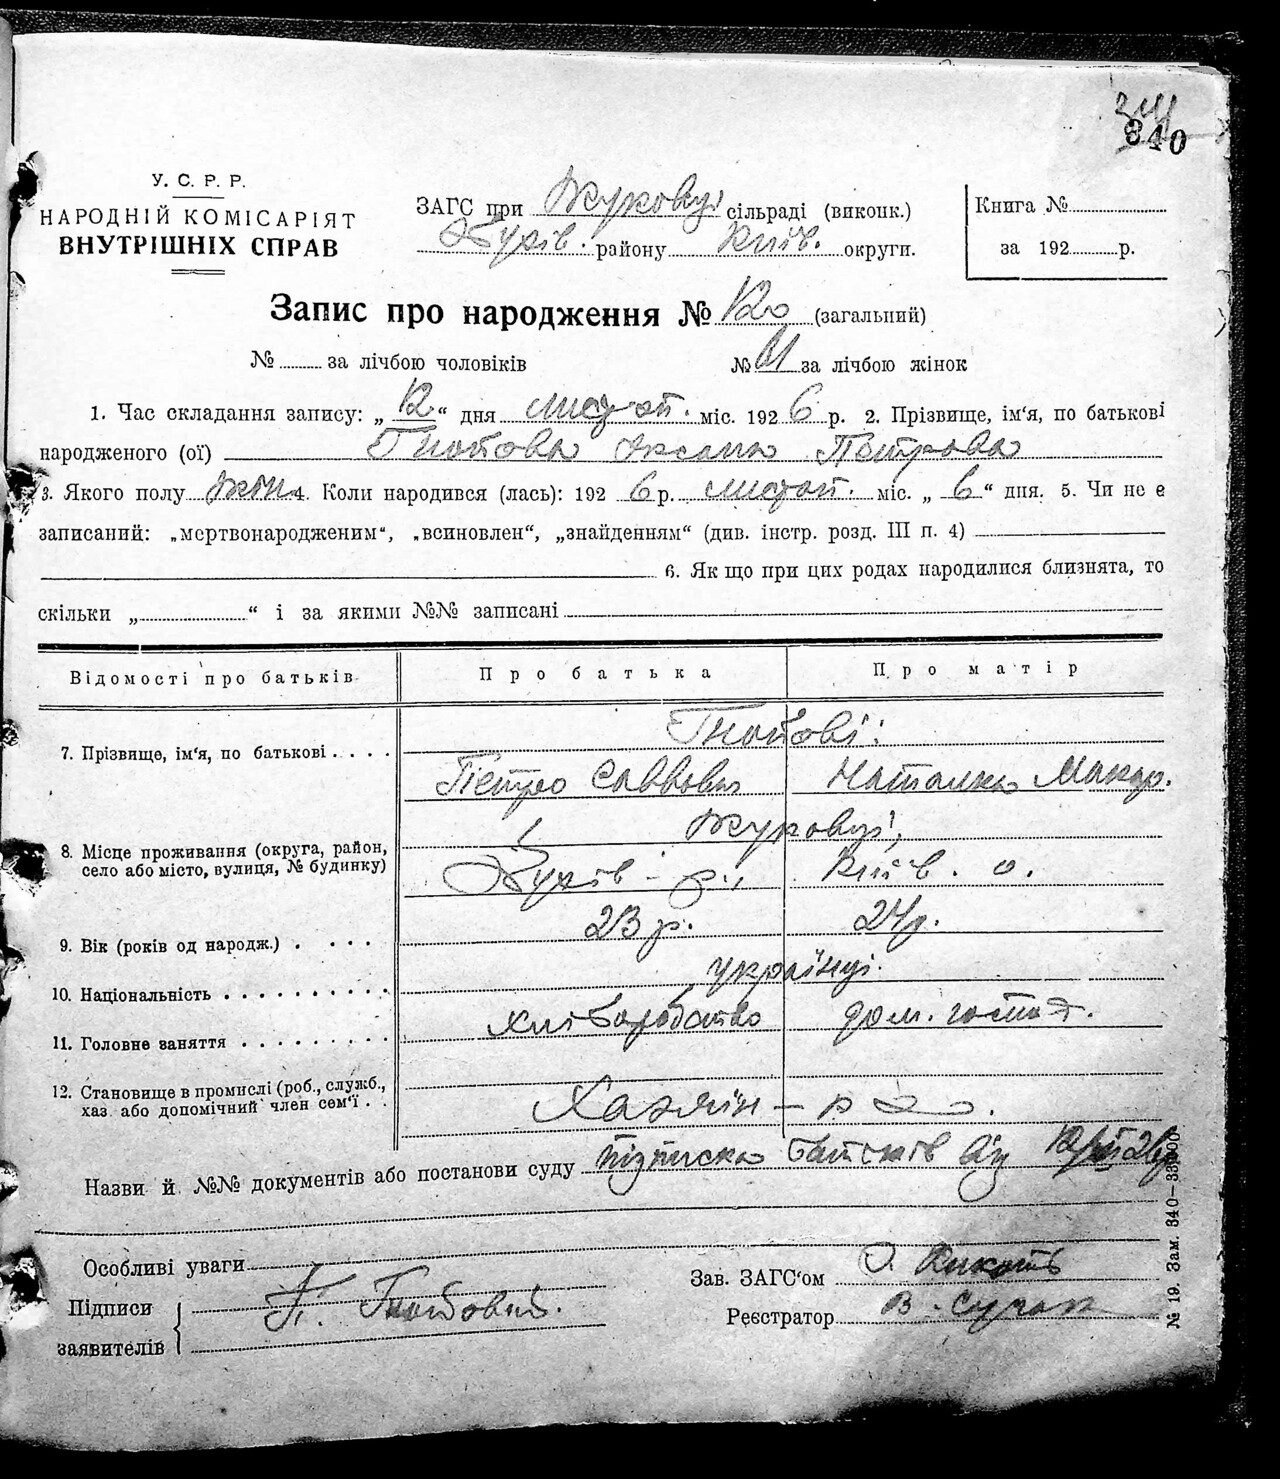 340
У. С. Р. Р.
НАРОДНІЙ КОМІСАРІЯТ
ВНУТРІШНІХ СПРАВ
ЗАГС при Жуковці сільраді (виконк.)
Обухів. району Київ. округи.
Книга №
за 192 р.
Запис про народження № 120 (загальний)
№ за лічбою чоловіків № 61 за лічбою жінок
1. Час складання запису: „12“ дня листоп. міс. 1926 р. 2. Прізвище, ім‘я, по батькові
народженого (ої) Оксана Петрова
3. Якого полу жін. 4. Коли народився (лась): 1926 р. листоп. міс. „6“ дня. 5. Чи не є
записаний: „мертвонародженим“, „всиновлен“, „знайденням“ (див. інстр. розд. III п. 4)
6. Як що при цих родах народилися близнята, то
скільки „ “ і за якими №№ записані
Відомості про батьків Про батька Про матір
7. Прізвище, ім‘я, по батькові
Петро Саввович Наталка Макар.
Жуковці,
8. Місце проживання (округа, район,
село або місто, вулиця, № будинку)
Обухів - р., Київ. о.
9. Вік (років од народж.) 23 р. 24 р.
10. Національність українці.
11. Головне заняття хліборобство дом. господ.
12. Становище в промислі (роб., служб.,
хаз. або допомічний член сем‘ї
Хазяїн -
Назви й №№ документів або постанови суду підписка батьків від 12/XI 26 р
Особливі уваги
Зав. ЗАГС‘ом
Підписи
заявителів
Реєстратор В.
№ 19. Зам. 340—33000